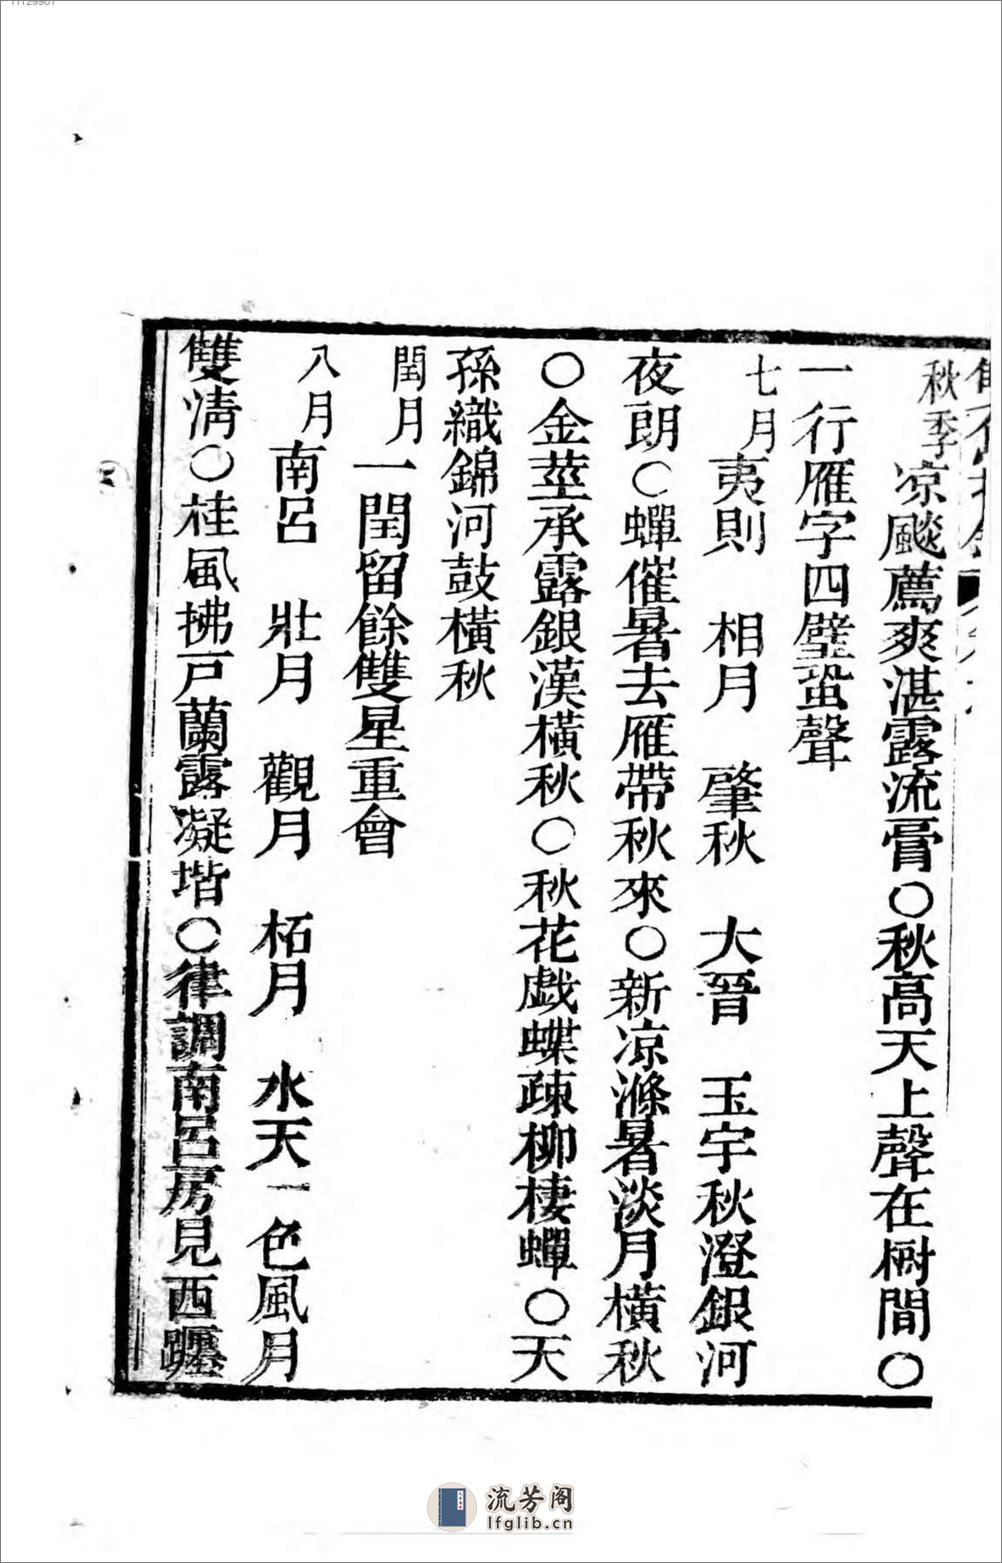 秋季 凉颷薦爽湛露流膏〇秋高天上聲在樹間〇
一行雁字四壁蛩聲
七月 夷則 相月 肇秋 大晉 玉宇秋澄銀河
夜朗〇蟬催暑去雁帶秋來〇新凉滌暑淡月橫秋
〇金莖承露銀漢橫秋〇秋花戲蝶疎柳棲蟬〇天
孫織錦河鼓橫秋
閏月 一閏留餘雙星重會
八月 南呂 壯月 觀月 柘月 水天一色風月
雙清〇桂風拂戸蘭露凝堦〇律調南呂房見西躔
流芳阁
lfglib.cn